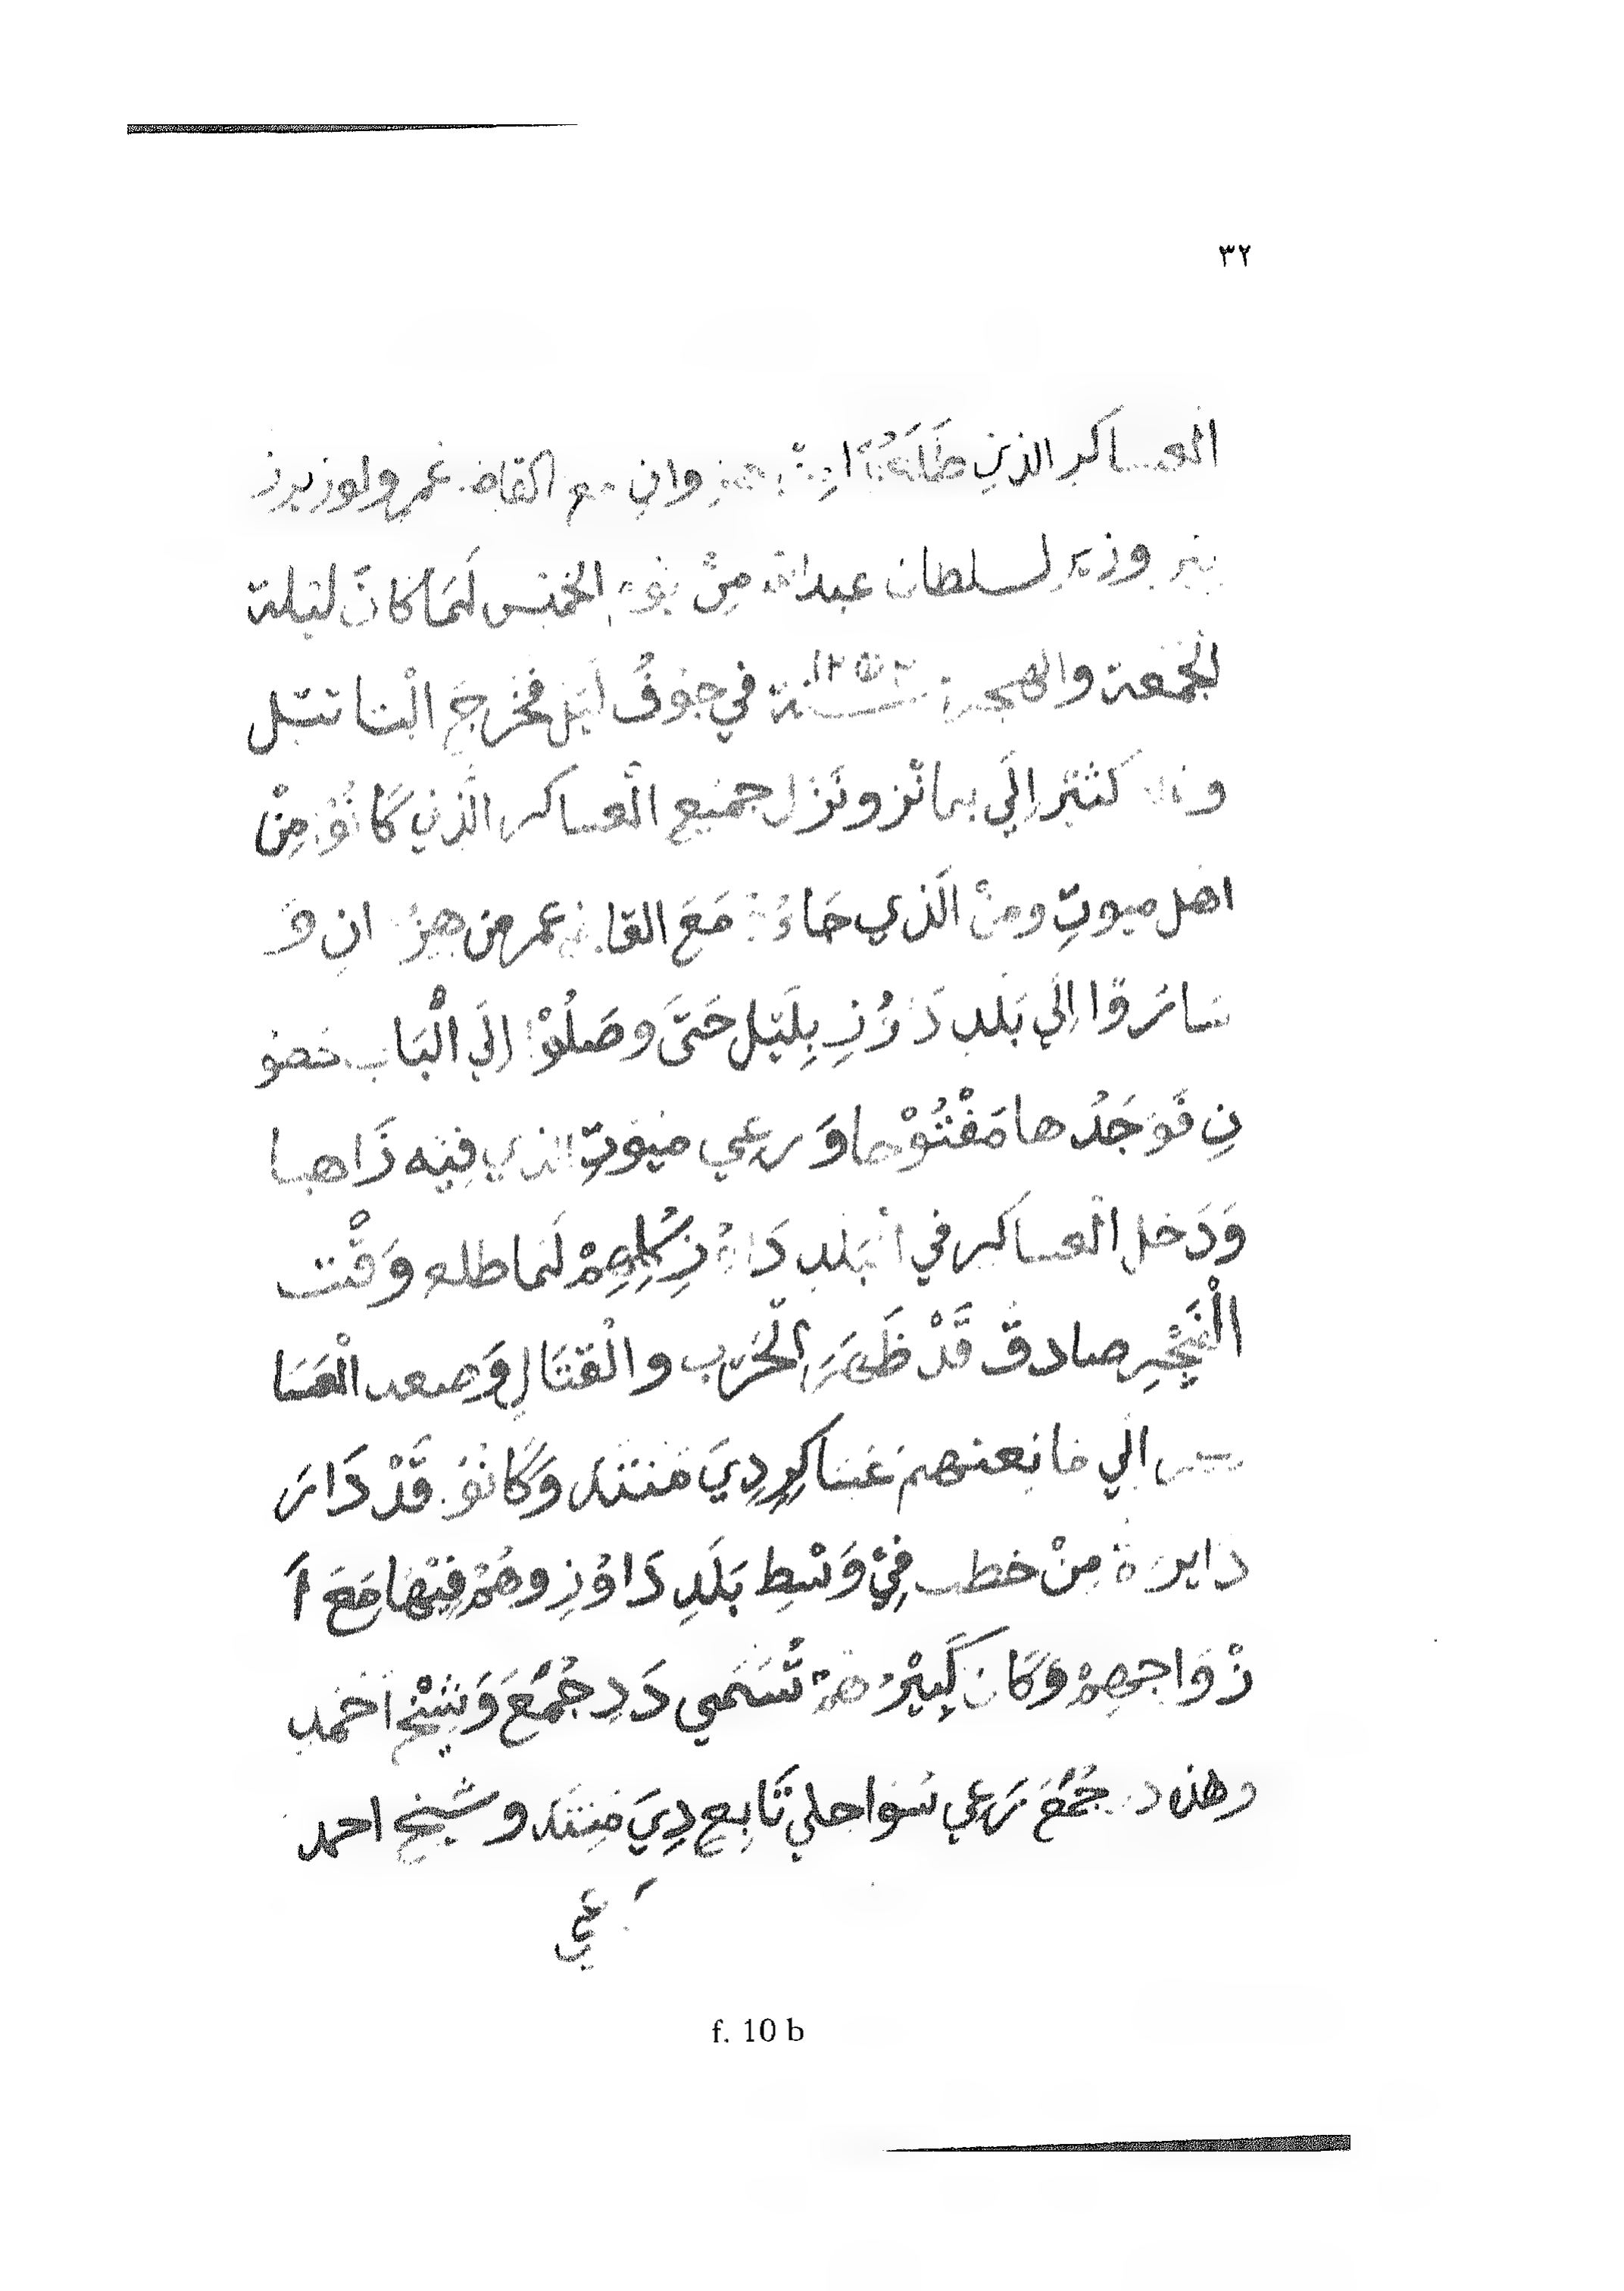 ٣٢
العساكر الذين وان مع القاض عمر ولوزيرز
وزير لسلطان عبدالله مِنْ يوم الخميس لَمَا كانَ ليلة
لجُمعة والهجرة سنة ١٢ في جوفُ لَيْل فخرجَ
كثيْر إلَي ونَزل جميع الْعساكر الَّذي كَانُوْ مِنْ
اهل ميوتِ ومنْ الَذي جَاءُ مَعَ القاض عمر من ان وَ
سَارَوا إلَي بَلَد دَاوُزِ بِلَيْل حَتَّى وصَلُوْا إلَي الْبَاب
نِ فَوَجَدُها مَفْتُوْحا وَرعي ميوتِ الذي فِيْه ذَاهبا
وَدَخل الْعساكر في الْبَلد دَاوُزِ كُلِهِمْ لَما طلع وَقْت
الْفَجْرِ صادقْ قَدْ ظَهَرَ الْحَرْب والْقتَالِ وَصعد الْعَسَا
كر الَي مانعنهم عَسَاكِرِ دِيَ مَنْتَد وَكَانُوْ قَدْ دَارَ
دَايرَة مِنْ خطب فِيْ وَسْطِ بَلَدِ دَاوُزِ وهُمْ فِيْهَا مَعَ اَ
زْوَاجهِمْ وَكَان كَبِيْرُهمْ تُسَمي دَدِ جُمُعَ وَشيْخ احْمد
وهذ دد جُمُعَ رَعي سَوَاحلي تَابع دِيَ مَنْتَد وشيخ احمد
رَعي
f. 10 b